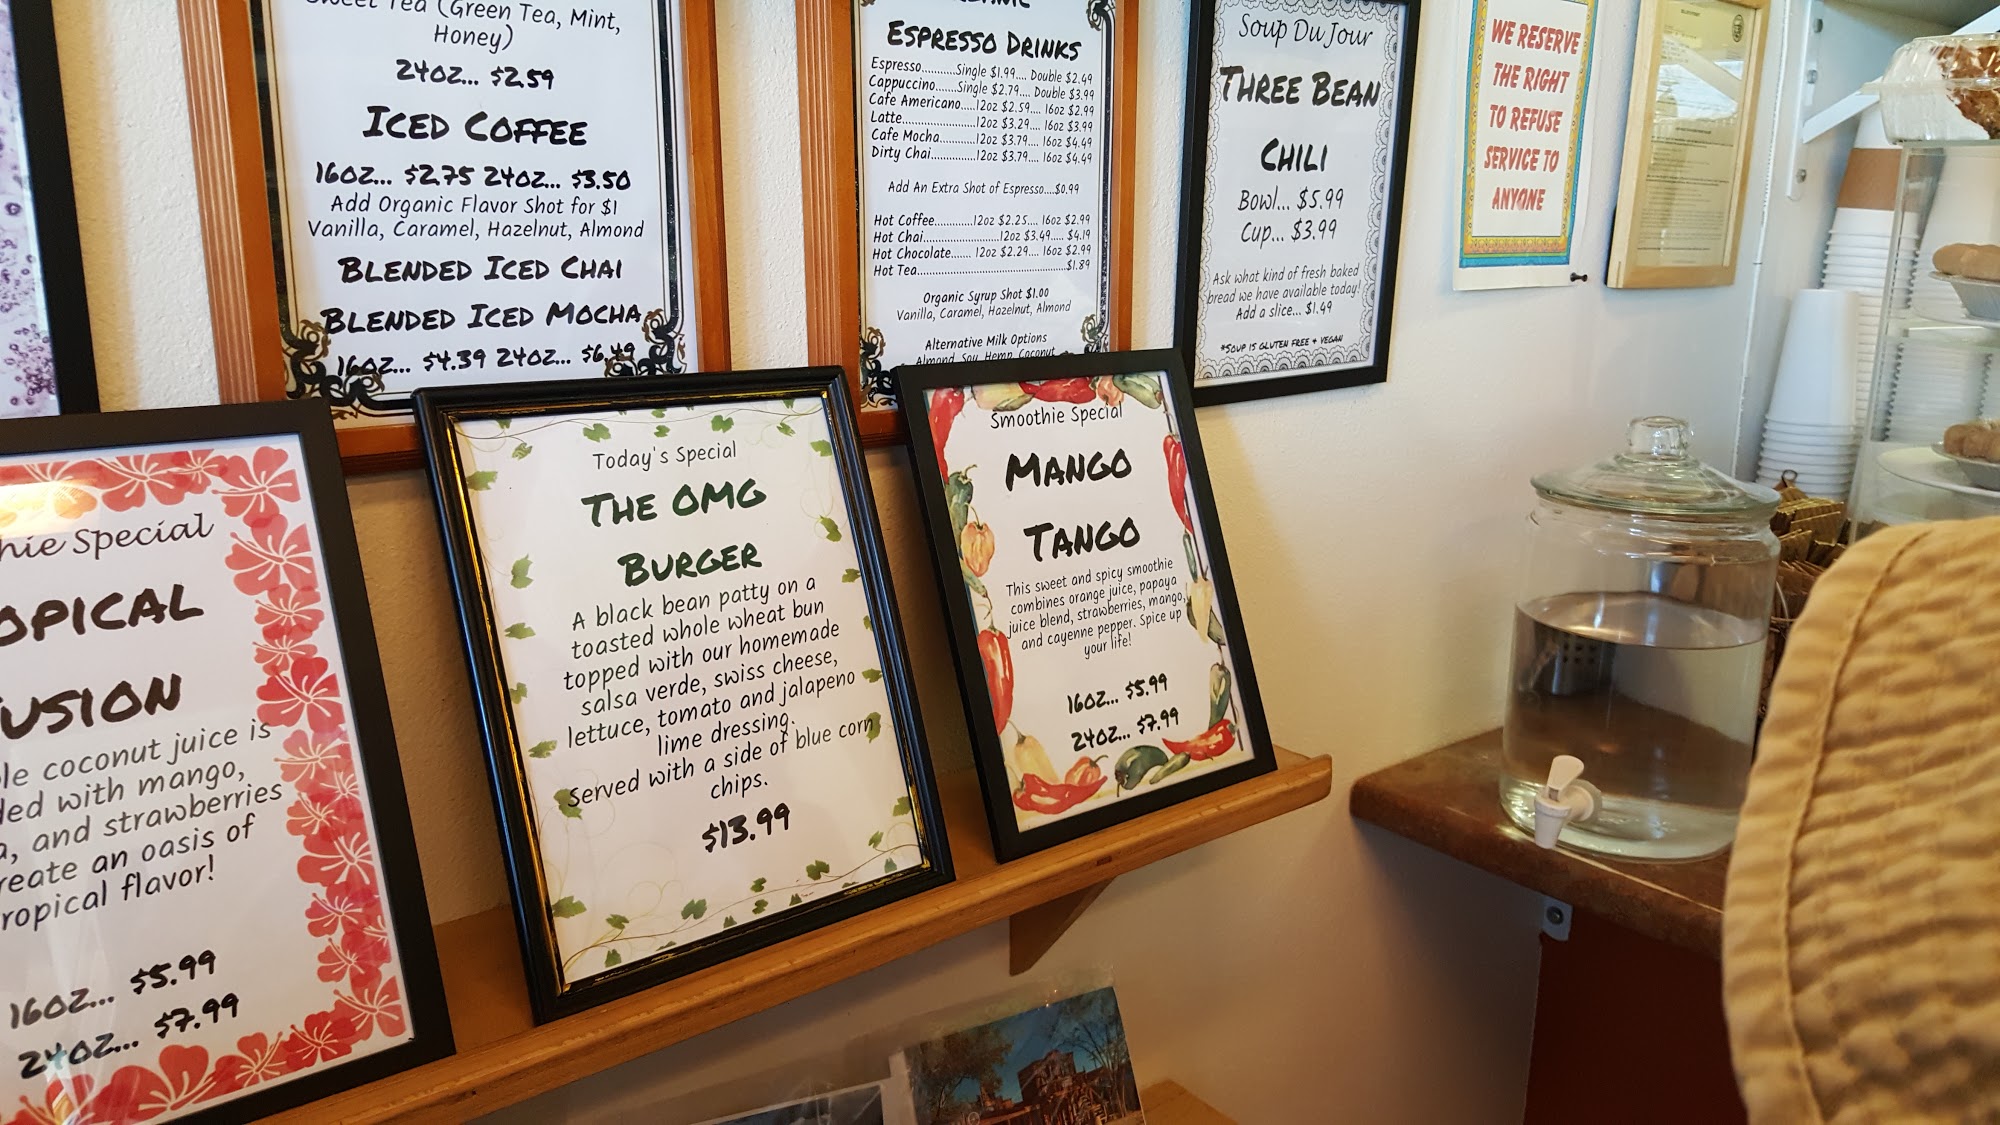 Sweet Tea (Green Tea, Mint,
Honey)
24oz... $2.59
Iced Coffee
16oz... $2.75 24oz... $3.50
Add Organic Flavor Shot for $1
Vanilla, Caramel, Hazelnut, Almond
Blended Iced Chai
Blended Iced Mocha
16oz... $4.39 24oz... $6.49
Espresso Drinks
Espresso...........Single $1.99.... Double $2.49
Cappuccino.......Single $2.79.... Double $3.99
Cafe Americano....12oz $2.59.... 16oz $2.99
Latte........................12oz $3.29.... 16oz $3.99
Cafe Mocha...........12oz $3.79.... 16oz $4.49
Dirty Chai...............12oz $3.79.... 16oz $4.49
Add An Extra Shot of Espresso....$0.99
Hot Coffee............12oz $2.25.... 16oz $2.99
Hot Chai........................12oz $3.49..... $4.19
Hot Chocolate....... 12oz $2.29.... 16oz $2.99
Hot Tea................................................$1.89
Organic Syrup Shot $1.00
Vanilla, Caramel, Hazelnut, Almond
Alternative Milk Options
Almond, Soy, Hemp, Coconut
Soup Du Jour
Three Bean
Chili
Bowl... $5.99
Cup... $3.99
Ask what kind of fresh baked
bread we have available today!
Add a slice... $1.49
*Soup is gluten free + vegan
WE RESERVE
THE RIGHT
TO REFUSE
SERVICE TO
ANYONE
Special
16oz... $5.99
24oz... $7.99
coconut juice is
with mango,
and strawberries
an oasis of
flavor!
Today's Special
The OMG
Burger
A black bean patty on a
toasted whole wheat bun
topped with our homemade
salsa verde, swiss cheese,
lettuce, tomato and jalapeno
lime dressing.
Served with a side of blue corn
chips.
$13.99
Smoothie Special
Mango
Tango
This sweet and spicy smoothie
combines orange juice, papaya
juice blend, strawberries, mango,
and cayenne pepper. Spice up
your life!
16oz... $5.99
24oz... $7.99